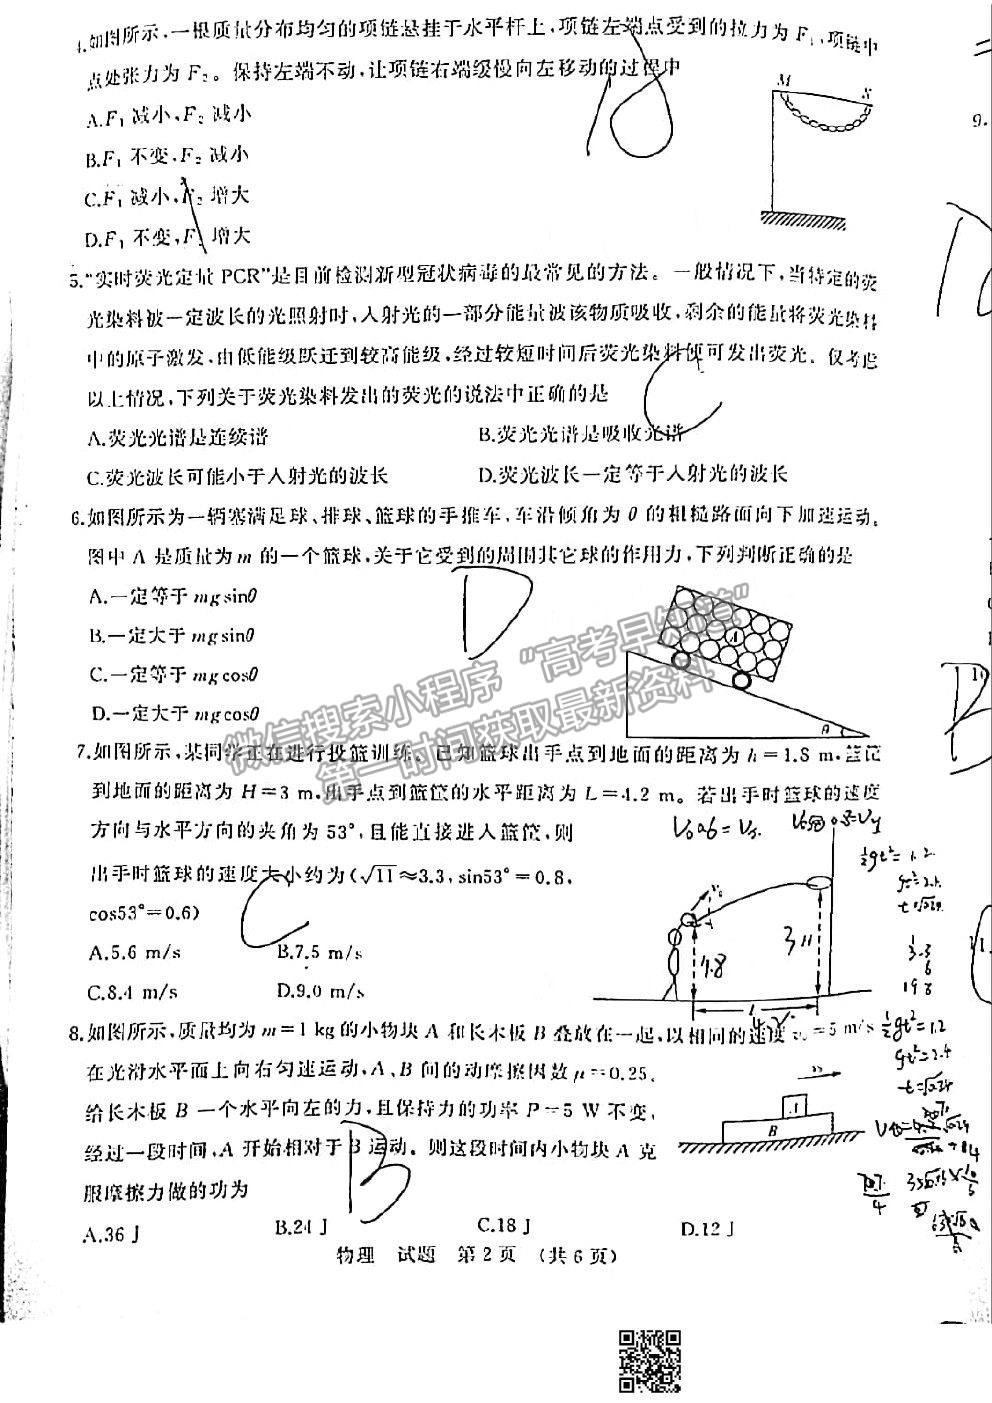 4.如图所示,一根质量分布均匀的项链悬挂于水平杆上,项链左端点受到的拉力为F₁,项链中
点处张力为F₂。保持左端不动,让项链右端缓慢向左移动的过程中
A.F₁减小,F₂减小
B.F₁不变,F₂减小
C.F₁减小,F₂增大
D.F₁不变,F₂增大
M
N
5."实时荧光定量PCR"是目前检测新型冠状病毒的最常见的方法。一般情况下,当特定的荧
光染料被一定波长的光照射时,入射光的一部分能量被该物质吸收,剩余的能量将荧光染料
中的原子激发,由低能级跃迁到较高能级,经过较短时间后荧光染料便可发出荧光。仅考虑
以上情况,下列关于荧光染料发出的荧光的说法中正确的是
C
A.荧光光谱是连续谱
B.荧光光谱是吸收光谱
C.荧光波长可能小于入射光的波长
D.荧光波长一定等于入射光的波长
6.如图所示为一辆塞满足球、排球、篮球的手推车,车沿倾角为θ的粗糙路面向下加速运动。
图中A是质量为m的一个篮球,关于它受到的周围其它球的作用力,下列判断正确的是
D
A.一定等于mgsinθ
B.一定大于mgsinθ
C.一定等于mgcosθ
D.一定大于mgcosθ
A
θ
微信搜索小程序"高考早知道"
第一时间获取最新资料
7.如图所示,某同学正在进行投篮训练。已知篮球出手点到地面的距离为h=1.8 m,篮筐
到地面的距离为H=3 m,出手点到篮筐的水平距离为L=4.2 m。若出手时篮球的速度
方向与水平方向的夹角为53°,且能直接进入篮筐,则
出手时篮球的速度大小约为(√11≈3.3,sin53°=0.8,
cos53°=0.6)
C
A.5.6 m/s
B.7.5 m/s
C.8.4 m/s
D.9.0 m/s
1.8
3
H
L
9.
8.如图所示,质量均为m=1 kg的小物块A和长木板B叠放在一起,以相同的速度v₀=5 m/s
在光滑水平面上向右匀速运动,A、B间的动摩擦因数μ=0.25。
给长木板B一个水平向左的力,且保持力的功率P=5 W不变,
经过一段时间,A开始相对于B运动。则这段时间内小物块A克
服摩擦力做的功为
B
A
B
A.36 J
B.24 J
C.18 J
D.12 J
物理 试题 第2页 (共6页)